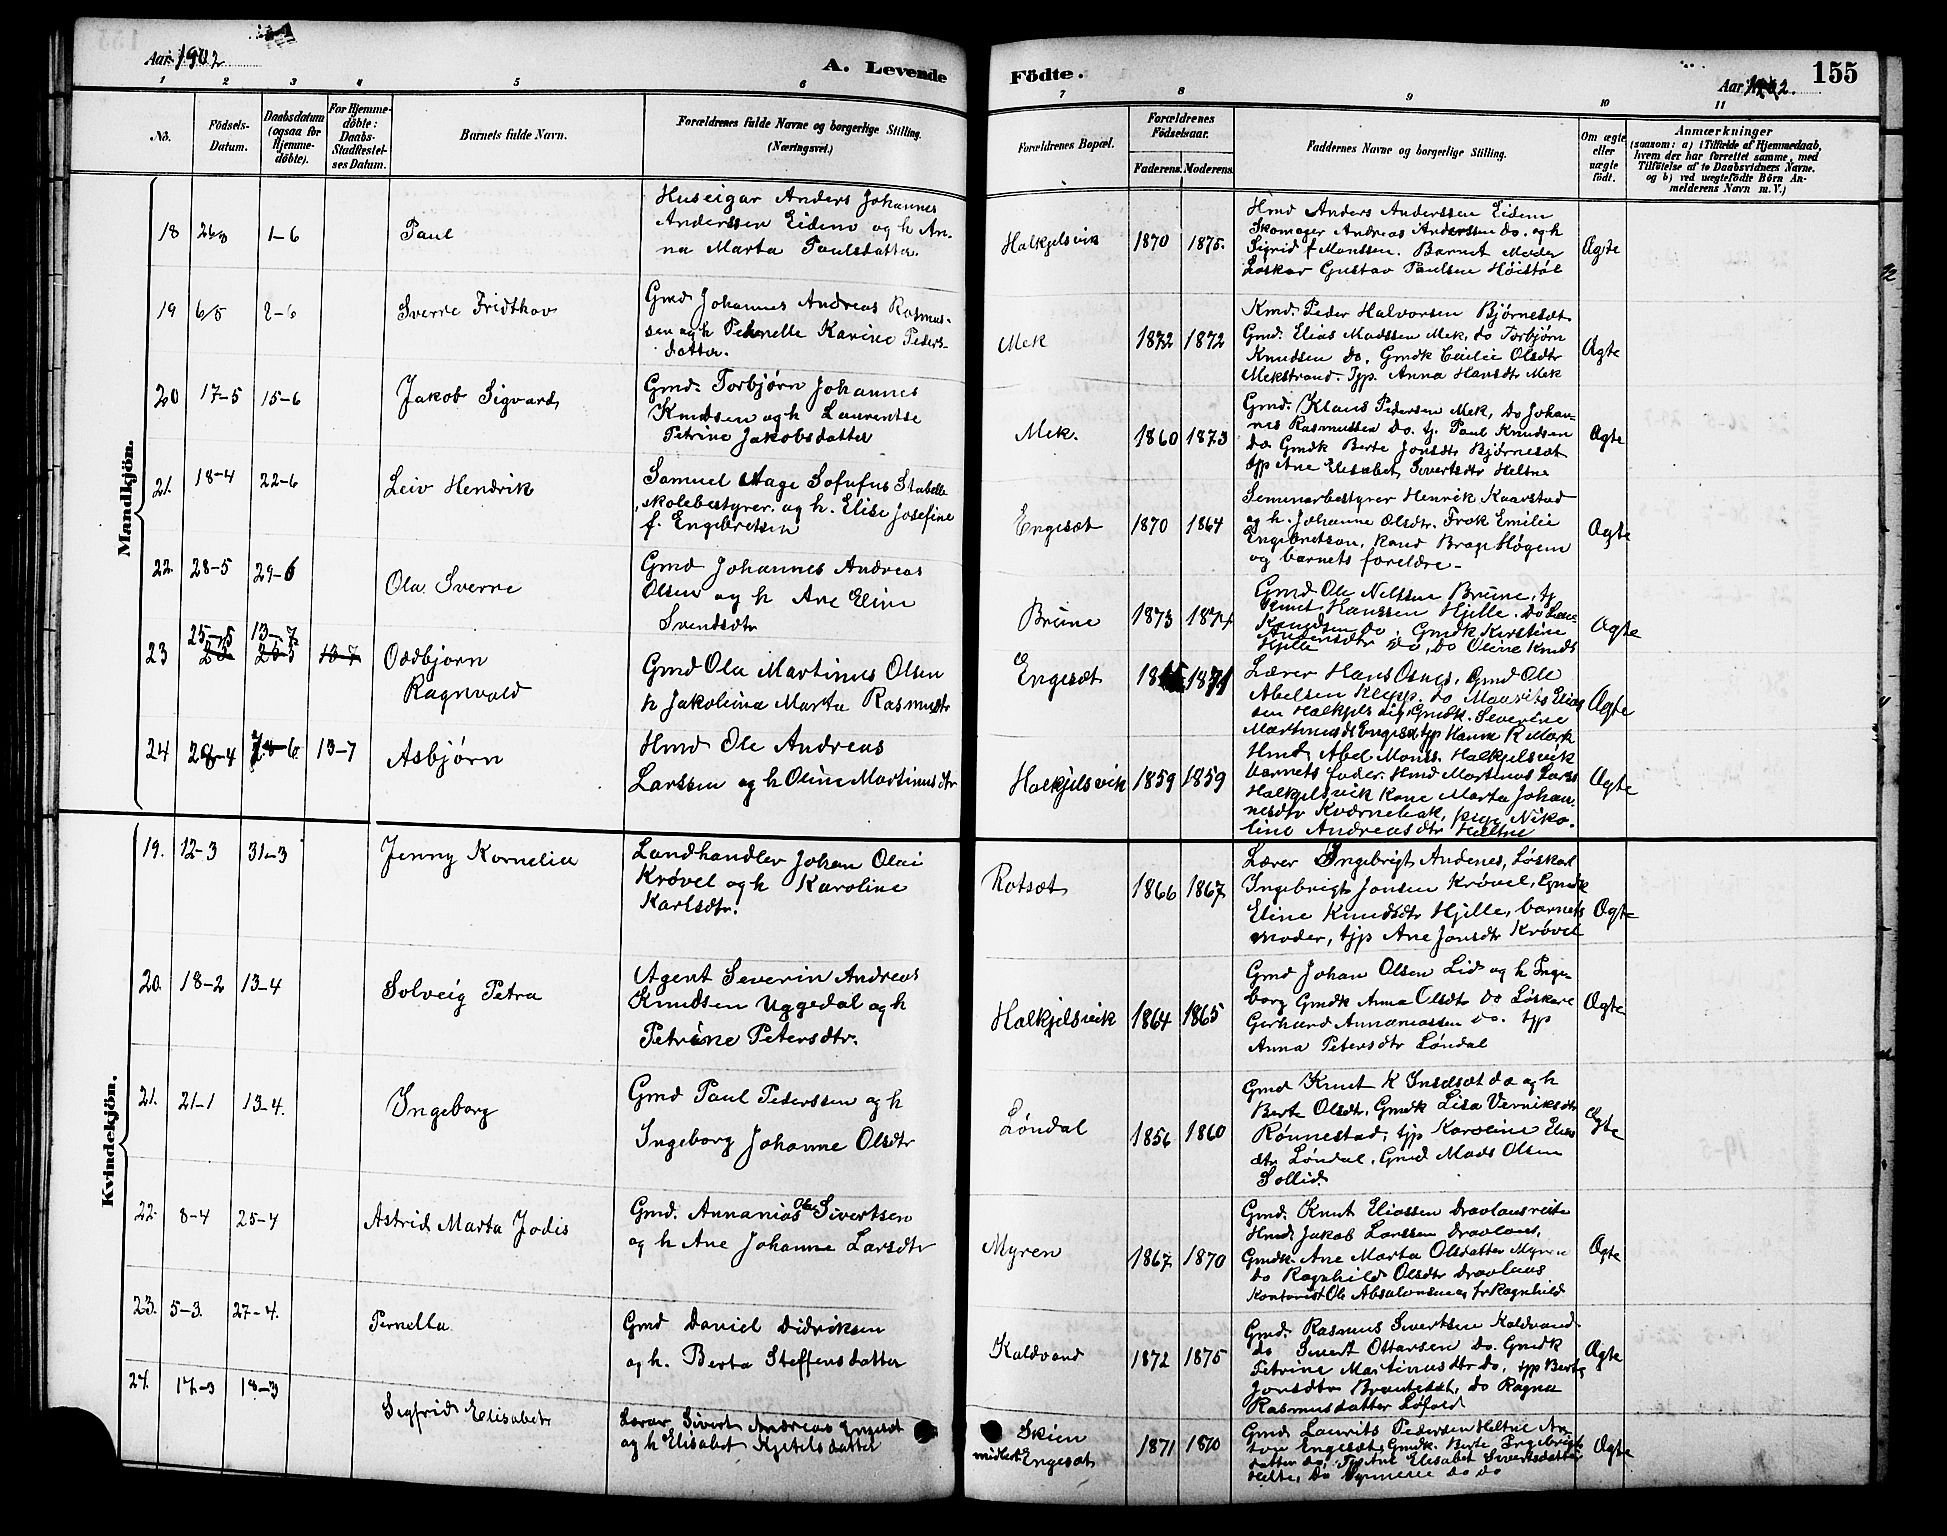 Aar 1902
A. Levende
Födte.
Aar 1902.
155
1 2 3 4 5 6 7 8 9 10 11
No.
Födsels-
Datum.
Daabsdatum
(ogsaa for
Hjemme-
döbte).
For Hjemme-
döbte:
Daabs-
Stadfæstel-
ses Datum.
Barnets fulde Navn.
Forældrenes fulde Navne og borgerlige Stilling.
(Næringsvei.)
Forældrenes Bopæl.
Forældrenes
Födselsaar.
Faderens. Moderens.
Faddernes Navne og borgerlige Stilling.
Om ægte
eller
uægte
födt.
Anmærkninger
(saasom: a) i Tilfælde af Hjemmedaab,
hvem der har forrettet samme, med
Tilföielse af to Daabsvidners Navne.
og b) ved uægtefödte Börn An-
melderens Navn m. V.)
Mandkjön.
18
1-6
Paul
Huseigar Anders Johannes
Anderssen Eidem og h An-
na Marta Paulsdatter.
Halkjelsvik
1870 1875.
Hmd Anders Anderssen Eidem
Skomager Andreas Anderssen do. og h
Sigrid f Monssen. Barnet Moder
Løskar Gustav Paulsen Høistøl
Ægte
19
6/5
2-6
Sverre Fridthov
Gmd Johannes Andreas Rasmus-
sen og h Pernelle Karine Peders-
datter.
Mek
1872 1872
Kmd. Peder Halvorsen Bjørneset
Gmd. Elias Madssen Mek, do Torbjørn
Knudsen do, Gmdk Cecilie Olsdtr
Mekstrand. tjp. Anna Hansdtr Mek
Ægte
20
17-5
15-6
Jakob Sigvard
Gmd. Torbjørn Johannes
Knudsen og h Laurentse
Petrine Jakobsdatter
Mek.
1860 1873
Gmd. Klaus Pedersen Mek, do Johan-
nes Rasmussen do. tj. Paul Knudsen
do. Gmdk Berte Jonsdtr Bjørneset
tjp Ane Elisabet Sivertsdtr Heltne
Ægte
21.
18-4
22-6
Leiv Hendrik
Samuel Aage Sofufus Stabelle
skolebestyrer. og h. Elise Josefine
f. Engebretsen
Engeset
1870 1864
Seminarbestyrer Henrik Kaarstad
og h. Johanne Olsdtr. Frøk Emilie
Engebretsen, Kand Brage Høgem
og barnets foreldre-
Ægte
22.
28-5
29-6
Ola Sverre
Gmd Johannes Andreas
Olsen og h Ane Eline
Svendsdtr
Brune
1873 1874
Gmd Ole Nilssen Brune, tj
Knut Hanssen Hjelle. do
Knudsen do, Gmdk Kirstine
Andersdtr do, do Oline Knuds
Hjelle
Ægte
23
25-5
13-7
Oddbjørn
Ragnvald
Gmd Ola Martinus Olsen
h Jakolina Marta Rasmusdtr
Engeset
1871
Lærer Hans Osnes, Gmd Ole
Abelsen Klepp, do Maurits Elias
sen Halkjelsvig Gmdk. Severine
Martinusdtr Engeset tjp Hanna R Mork
Ægte
24
28-4
13-7
Asbjørn
Hmd Ole Andreas
Larssen og h Oline Martinusdtr
Halkjelsvik
1859 1859
Hmd Abel Monss. Halkjelsvik
barnets fader. Hmd Martinus Lars
Halkjelsvik Kone Marta Johan-
nesdtr Kværnebak, pige Niko-
line Andreasdtr Heltne
Ægte
Kvindekjön.
19.
12-3
31-3
Jenny Kornelia
Landhandler Johan Olai
Krøvel og h Karoline
Karlsdtr.
Rotset
1866 1867
Lærer Ingebrigt Andenes, Løskarl
Ingebrigt Jonsen Krøvel, Gmdk
Eline Knudsdtr Hjelle, barnets
moder, tjp Ane Jonsdtr Krøvel
Ægte
20.
18-2
13-4
Solveig Petra
Agent Severin Andreas
Knudsen Uggedal og h
Petrine Petersdtr.
Halkjelsvik
1864 1865
Gmd Johan Olsen Lid og h Inge-
borg Gmdk Anna Olsdtr do Løskare
Gerhard Annaniassen do. tjp
Anna Petersdtr Løndal
Ægte
21.
21-1
13-4.
Ingeborg
Gmd Paul Pederssen og h
Ingeborg Johanne Olsdtr
Løndal
1856 1860
Gmd Knut K Insdset do og h
Berte Olsdtr, Gmdk Lisa Verniksdtr
Rønnestad, tjp Karoline Elias
dtr Løndal, Gmd Mads Olsen
Sollid.
Ægte
22.
8-4
25-4
Astrid Marta Jodis
Gmd. Annanias Ole Sivertsen
og h Ane Johanne Larsdtr
Myren
1867 1870
Gmd. Knut Eliassen Dravlausreite
Hmd Jakob Larssen Dravlaus,
Gmdk. Ane Marta Olsdatter Myren
do Ragnhild Olsdtr Dravlaus
Kontorist Ole Absalonsen og fr Ragnhild
Ægte
23.
5-3.
27-4.
Pernella
Gmd Daniel Didriksen
og h. Berta Steffensdatter
Kaldvand
1872 1875
Gmd. Rasmus Sivertsen Kaldvand
do Sivert Ottarsen do. Gmdk
Petrine Martinusdtr do, tjp Berte
Jonsdtr Brauteset, do Ragna
Rasmusdatter Løfold
Ægte
24.
17-3
18-3
Sigfrid Elisabet
Lærar Sivert Andreas Engeset
og h Elisabet Kjetelsdatter
Skien
midlert Engeset
1871 1870
Gmd Laurits Pedersen Heltne An-
ton Engeset, Gmdk. Berte Ingebrigts
datter do, Tjp Ane Elisabet Sivertsdatter
Heltne, do do do
Ægte